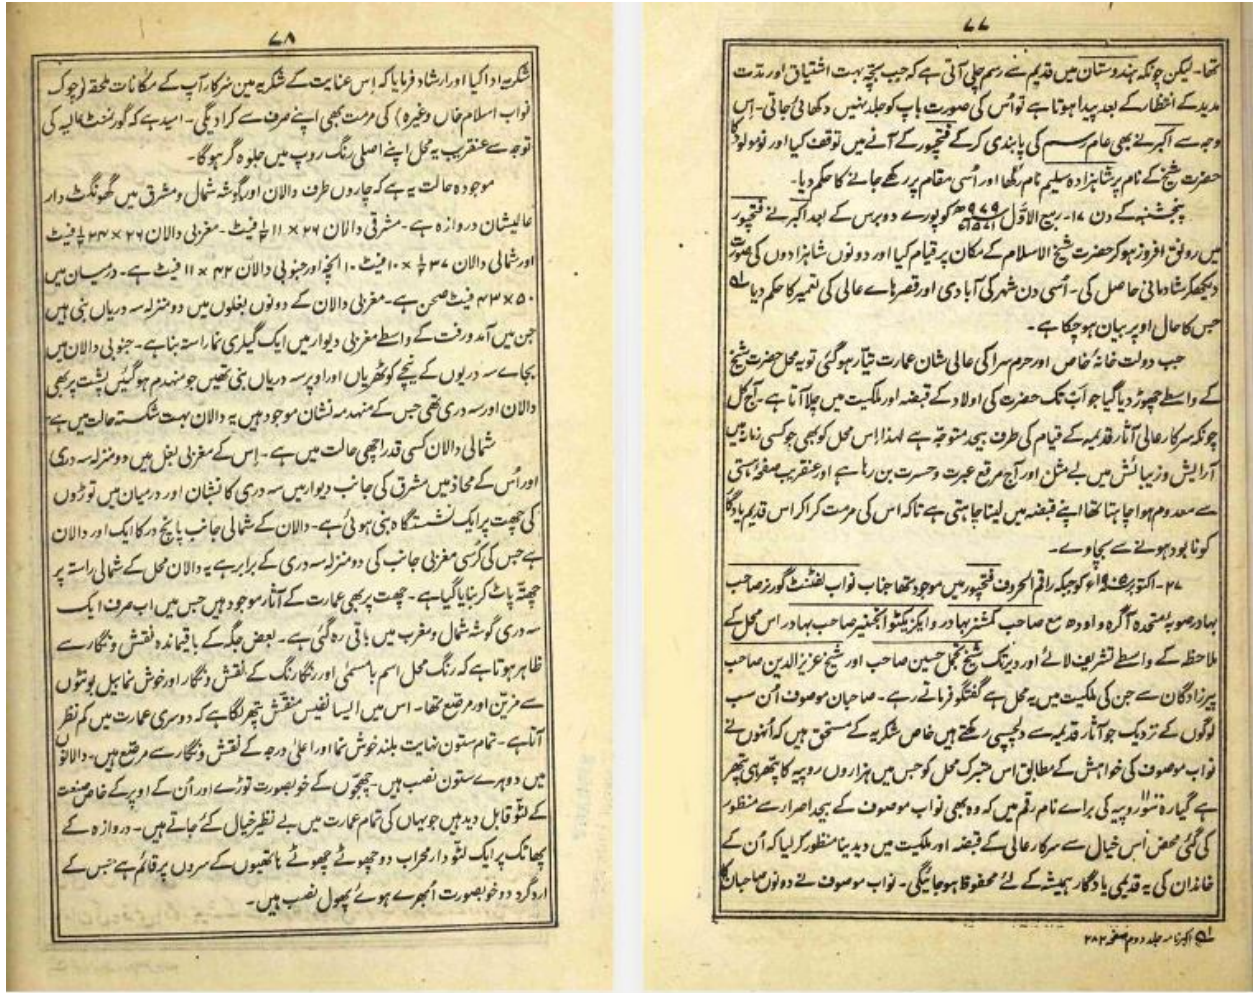 ۷۷
تھا۔ لیکن چونکہ ہندوستان میں قدیم سے رسم چلی آتی ہے کہ جب بچہ بہت اشتیاق اور مدت
مدید کے انتظار کے بعد پیدا ہوتا ہے تو اُس کی صورت باپ کو جلد نہیں دکھائی جاتی۔ اِس
وجہ سے اکبر نے بھی عام رسم کی پابندی کرکے فتحپور کے آنے میں توقف کیا اور نومولود کا
حضرت شیخ کے نام پر شاہزادہ سلیم نام رکھا اور اُسی مقام پر رکھے جانے کا حکم دیا۔
پنجشنبہ کے دن ۱۷۔ ربیع الاوّل ۹۷۹ھ ۱۵۷۱ء کو پورے دو برس کے بعد اکبر نے فتحپور
میں رونق افروز ہوکر حضرت شیخ الاسلام کے مکان پر قیام کیا اور دونوں شاہزادوں کی صورت
دیکھکر شادمانی حاصل کی۔ اُسی دن شہر کی آبادی اور قصرہاے عالی کی تعمیر کا حکم دیا ۵۱
جس کا حال اوپر بیان ہوچکا ہے۔
جب دولت خانۂ خاص اور حرم سرا کی عالی شان عمارت تیّار ہوگئی تو یہ محل حضرت شیخ
کے واسطے چھوڑ دیا گیا جو اَب تک حضرت کی اولاد کے قبضہ اور ملکیت میں چلا آتا ہے۔ آج کل
چونکہ سرکار عالی آثار قدیمہ کے قیام کی طرف بیحد متوجّہ ہے لہذا اِس محل کو بھی جو کسی زمانہ میں
آرایش و زیبائش میں بے مثل اور آج مرقع عبرت و حسرت بن رہا ہے اور عنقریب صفحۂ ہستی
سے معدوم ہوا چاہتا تھا اپنے قبضہ میں لینا چاہتی ہے تاکہ اس کی مرمت کراکر اس قدیم یادگار
کو نابود ہونے سے بچاوے۔
۲۷۔ اکتوبر ۱۹۰۵ء کو جبکہ راقم الحروف فتحپور میں موجود تھا جناب نواب لفٹننٹ گورنر صاحب
بہادر صوبۂ متحدہ آگرہ و اودھ مع صاحب کمشنر بہادر و ایگزیکٹو انجنیر صاحب بہادر اس محل کے
ملاحظہ کے واسطے تشریف لائے اور دیر تک شیخ تجمل حسین صاحب اور شیخ عزیز الدین صاحب
پیرزادگان سے جن کی ملکیت میں یہ محل ہے گفتگو فرماتے رہے۔ صاحبان موصوف اُن سب
لوگوں کے نزدیک جو آثار قدیمہ سے دلچسپی رکھتے ہیں خاص شکریہ کے مستحق ہیں کہ اُنہوں نے
نواب موصوف کی خواہش کے مطابق اس متبرک محل کو جس میں ہزاروں روپیہ کا پتھر ہی پتھر
ہے گیارہ سو روپیہ کی براے نام رقم میں کہ وہ بھی نواب موصوف کے بیحد اصرار سے منظور
کی گئی محض اُس خیال سے سرکار عالی کے قبضہ اور ملکیت میں دیدینا منظور کرلیا کہ اُن کے
خاندان کی یہ قدیمی یادگار ہمیشہ کے لئے محفوظ ہوجائیگی۔ نواب موصوف نے دونوں صاحبان کا
۵۱ اکبرنامہ جلد دوم صفحہ ۲۸۲
۷۸
شکریہ ادا کیا اور ارشاد فرمایا کہ اِس عنایت کے شکریہ میں سرکار آپ کے مکانات ملحقہ (چوک
نواب اسلام خاں وغیرہ) کی مرمت بھی اپنے صرف سے کرا دیگی۔ امید ہے کہ گورنمنٹ عالیہ کی
توجہ سے عنقریب یہ محل اپنے اصلی رنگ روپ میں جلوہ گر ہوگا۔
موجودہ حالت یہ ہے کہ چاروں طرف دالان اور گوشہ شمال و مشرق میں گھونگٹ دار
عالیشان دروازہ ہے۔ مشرقی دالان ۲۶ × ۱۱ ½ فیٹ۔ مغربی دالان ۲۶ × ۲۴ ½ فیٹ
اور شمالی دالان ۳۷ ½ × ۱۰ فیٹ ۱۰ انچہ اور جنوبی دالان ۴۲ × ۱۱ فیٹ ہے۔ درمیان میں
۵۰ × ۴۳ فیٹ صحن ہے۔ مغربی دالان کے دونوں بغلوں میں دو منزلہ سہ دریاں بنی ہیں
جن میں آمد و رفت کے واسطے مغربی دیوار میں ایک گیلری نما راستہ بنا ہے۔ جنوبی دالان میں
بجاے سہ دریوں کے نیچے کوٹھریاں اور اوپر سہ دریاں بنی تھیں جو منہدم ہوگئیں پشت پر بھی
دالان اور سہ دری تھی جس کے منہدمہ نشان موجود ہیں یہ دالان بہت شکستہ حالت میں ہے
شمالی دالان کسی قدر اچھی حالت میں ہے۔ اِس کے مغربی بغل میں دو منزلہ سہ دری
اور اُس کے محاذ میں مشرق کی جانب دیوار میں سہ دری کا نشان اور درمیان میں توڑوں
کی چھت پر ایک نشستگاہ بنی ہوئی ہے۔ دالان کے شمالی جانب پانچ در کا ایک اور دالان
ہے جس کی کرسی مغربی جانب کی دو منزلہ سہ دری کے برابر ہے یہ دالان محل کے شمالی راستہ پر
چھتّہ پاٹ کر بنایا گیا ہے۔ چھت پر بھی عمارت کے آثار موجود ہیں جس میں اب صرف ایک
سہ دری گوشہ شمال و مغرب میں باقی رہ گئی ہے۔ بعض جگہ کے باقیماندہ نقش و نگار سے
ظاہر ہوتا ہے کہ رنگ محل اسم بامسمیٰ اور رنگارنگ کے نقش و نگار اور خوش نما بیل بوٹوں
سے مزین اور مرصع تھا۔ اس میں ایسا نفیس منقّش پتھر لگا ہے کہ دوسری عمارت میں کم نظر
آتا ہے۔ تمام ستون نہایت بلند خوش نما اور اعلیٰ درجہ کے نقش و نگار سے مرصّع ہیں۔ دالانوں
میں دوہرے ستون نصب ہیں۔ چھجّوں کے خوبصورت توڑے اور اُن کے اوپر کے خاص صنعت
کے لٹّو قابل دید ہیں جو یہاں کی تمام عمارت میں بے نظیر خیال کئے جاتے ہیں۔ دروازہ کے
پھاٹک پر ایک لٹّو دار محراب دو چھوٹے چھوٹے ہاتھیوں کے سروں پر قائم ہے جس کے
اردگرد دو خوبصورت اُبھرے ہوئے پھول نصب ہیں۔